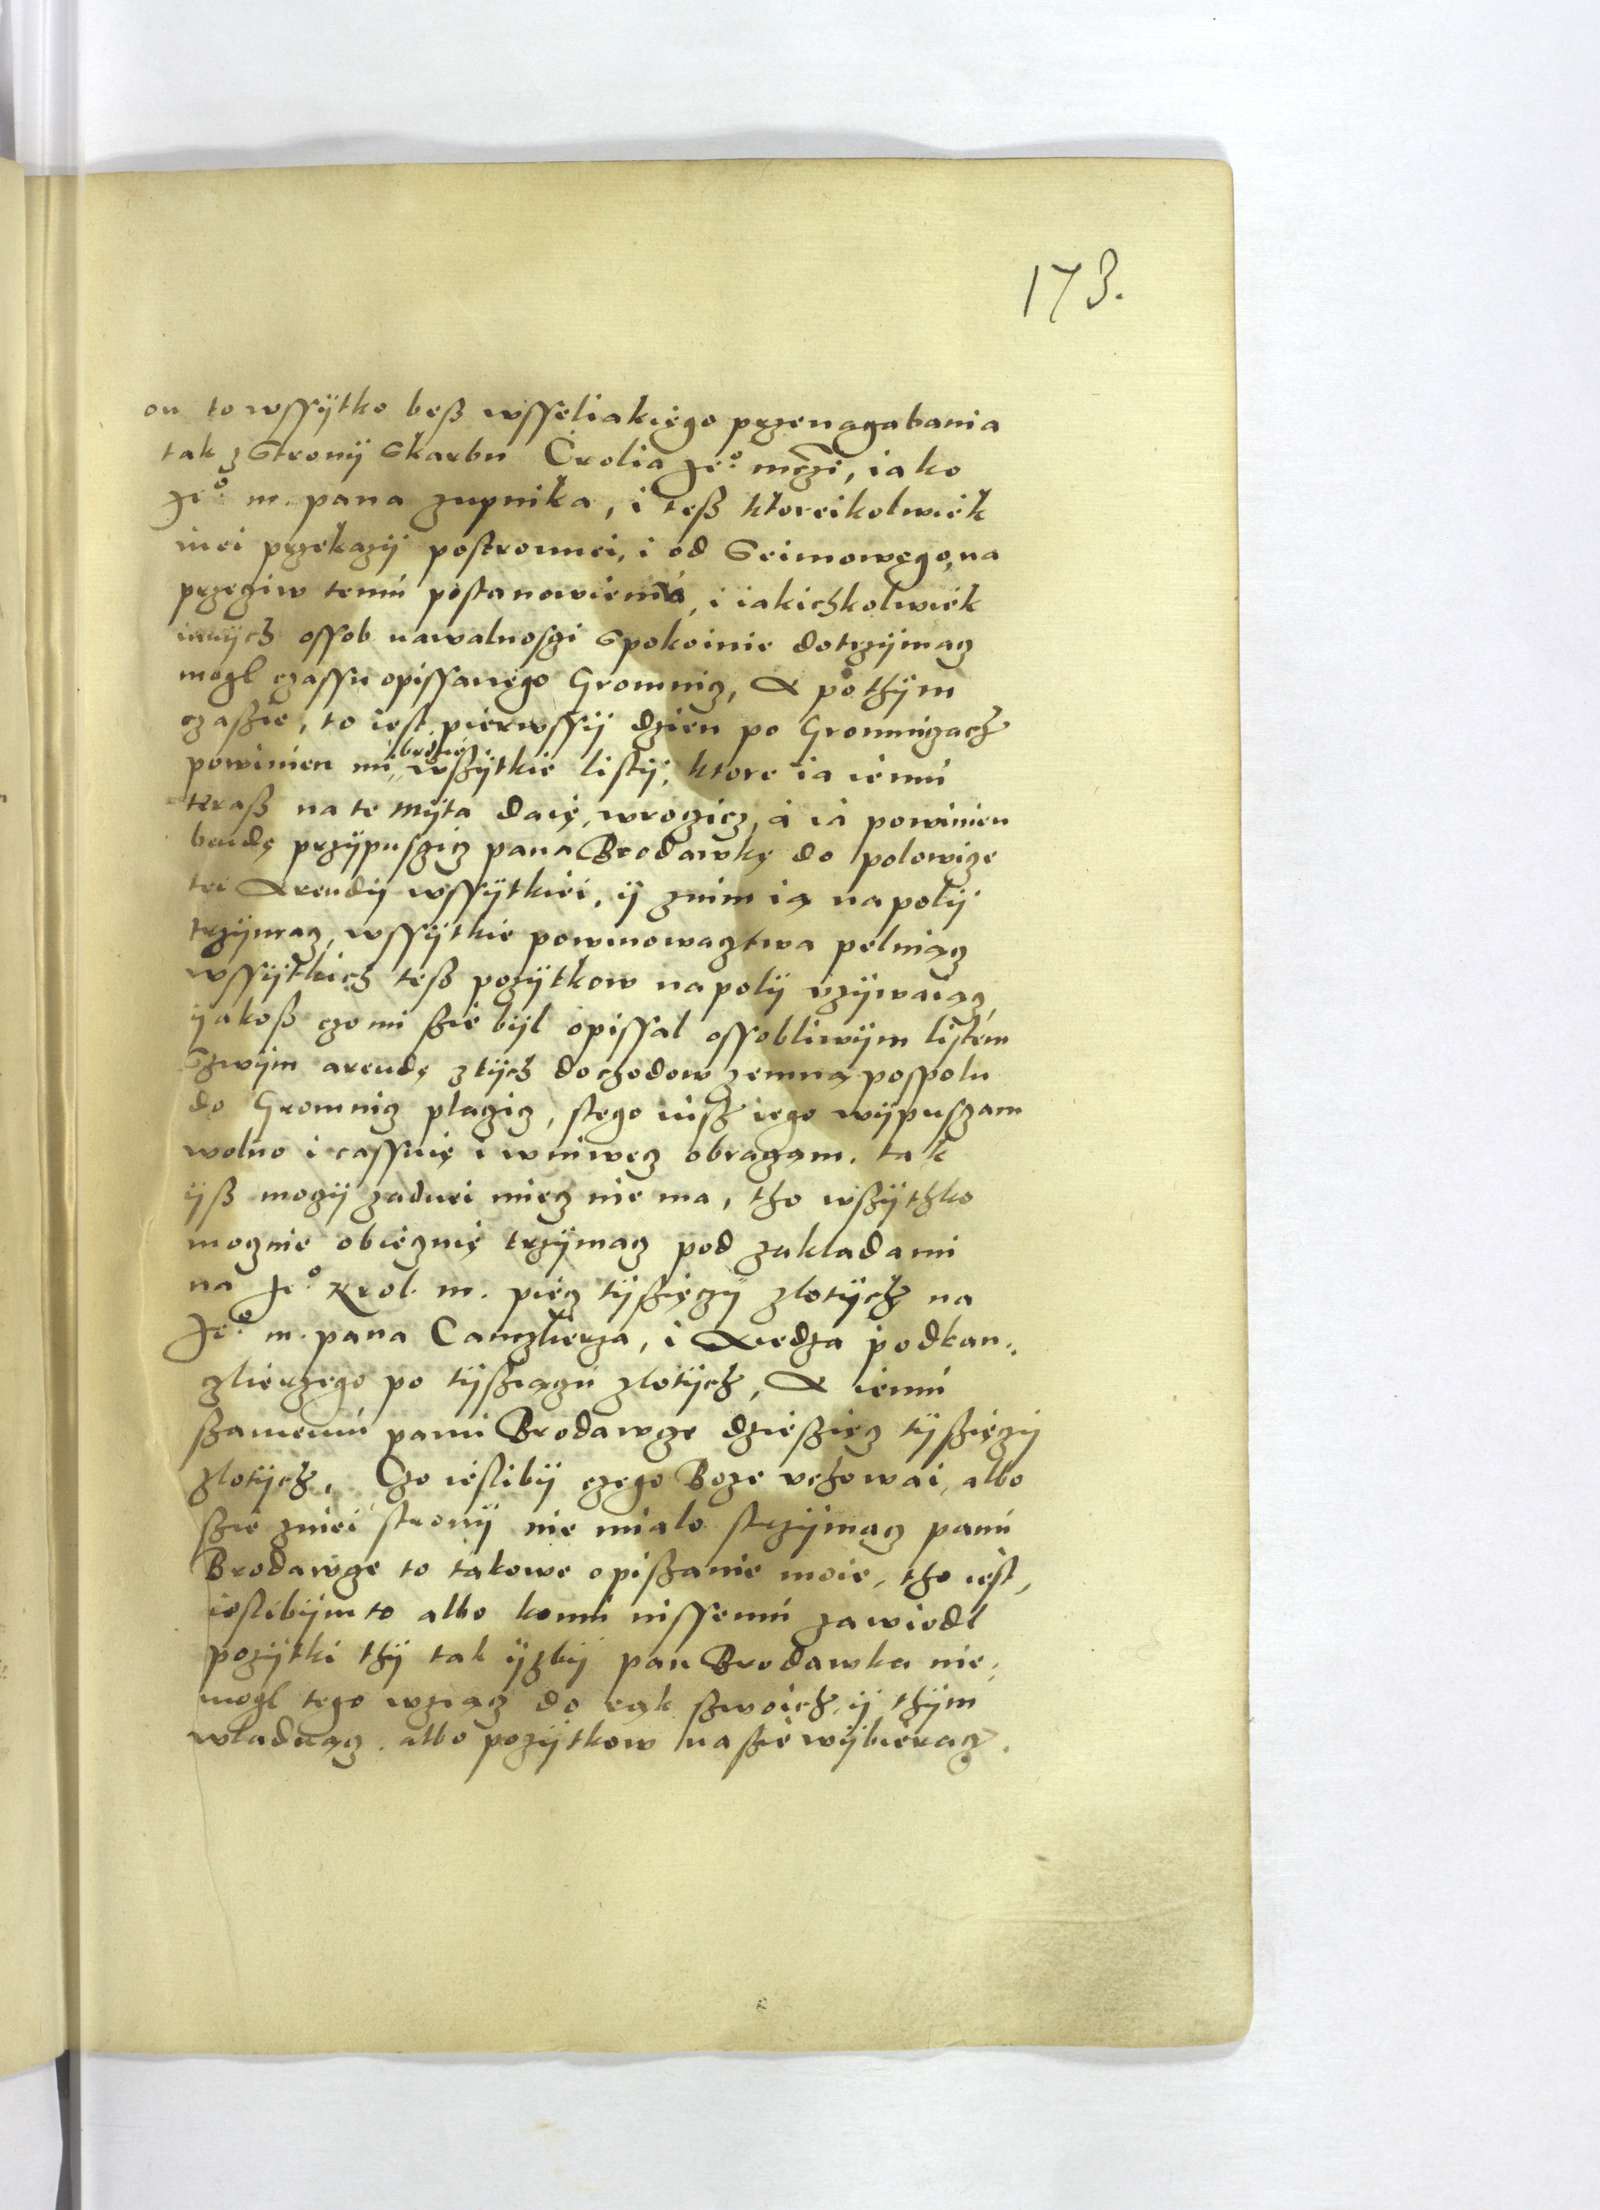 173.
on to wssÿtko beß wsseliakiego przenagabania
tak z stronÿ skarbu Crolia Je° mczi, iako
Je° m. pana zupnika, i teß ktoreikolwiek
inei przekazÿ postronnei, i od Seimowego, na
przeciw temu postanowienia, i iakichkolwiek
innÿch ossob nawalnosczi spokoinie dotrzÿmacz
mogl czassu opissanego Gromnicz, A po thÿm
czaszie, to iest pierwssÿ dzien po Gromniczach
powinien mi bendzie wszÿtkie listÿ, ktore ia iemu
teraß na te mÿta daię, wrocicz, a ia powinien
bendę przÿpuscicz pana Brodawkę do polowicze
tei Arendÿ wssÿtkiei, ÿ znim ią napolÿ
trzÿmacz, wssÿtkie powinowacztwa pelniącz
wssÿtkich teß pozÿtkow napolÿ uzÿwaiącz,
ÿakoß czo mi szie bÿl opissal ossobliwÿm listem
Szwÿm arendę ztÿch dochodow zemną pospolu
do Gromnicz placzicz, stego iusz iego wÿpuszczam
wolno i cassuię i wniwecz obraczam. tak
ÿß moczÿ zadnei miecz nie ma, tho wszÿthko
mocznie obiecznię trzÿmacz pod zakladami
na Je° Krol. m. piecz tÿszięczÿ zlotÿch na
Je° m. pana Canczlierza, i xiedza podkan:
czlierzego po tÿsziączu zlotÿch, A iemu
szamemu panu Brodawcze dziesziecz tÿszięczÿ
zlotÿch, Czo ieslibÿ czego Boze uchowai, albo
szie zmei stronÿ nie mialo strzÿmacz panu
Brodawcze to takowe opiszanie moie, tho iest,
ieslibÿm to albo komu inssemu zawiodl
pozÿtki thÿ tak ÿzbÿ pan Brodawka nie:
mogl tego wziącz do rąk szwoich, ÿ thÿm
wladnącz, albo pozÿtkow na szie wÿbieracz.